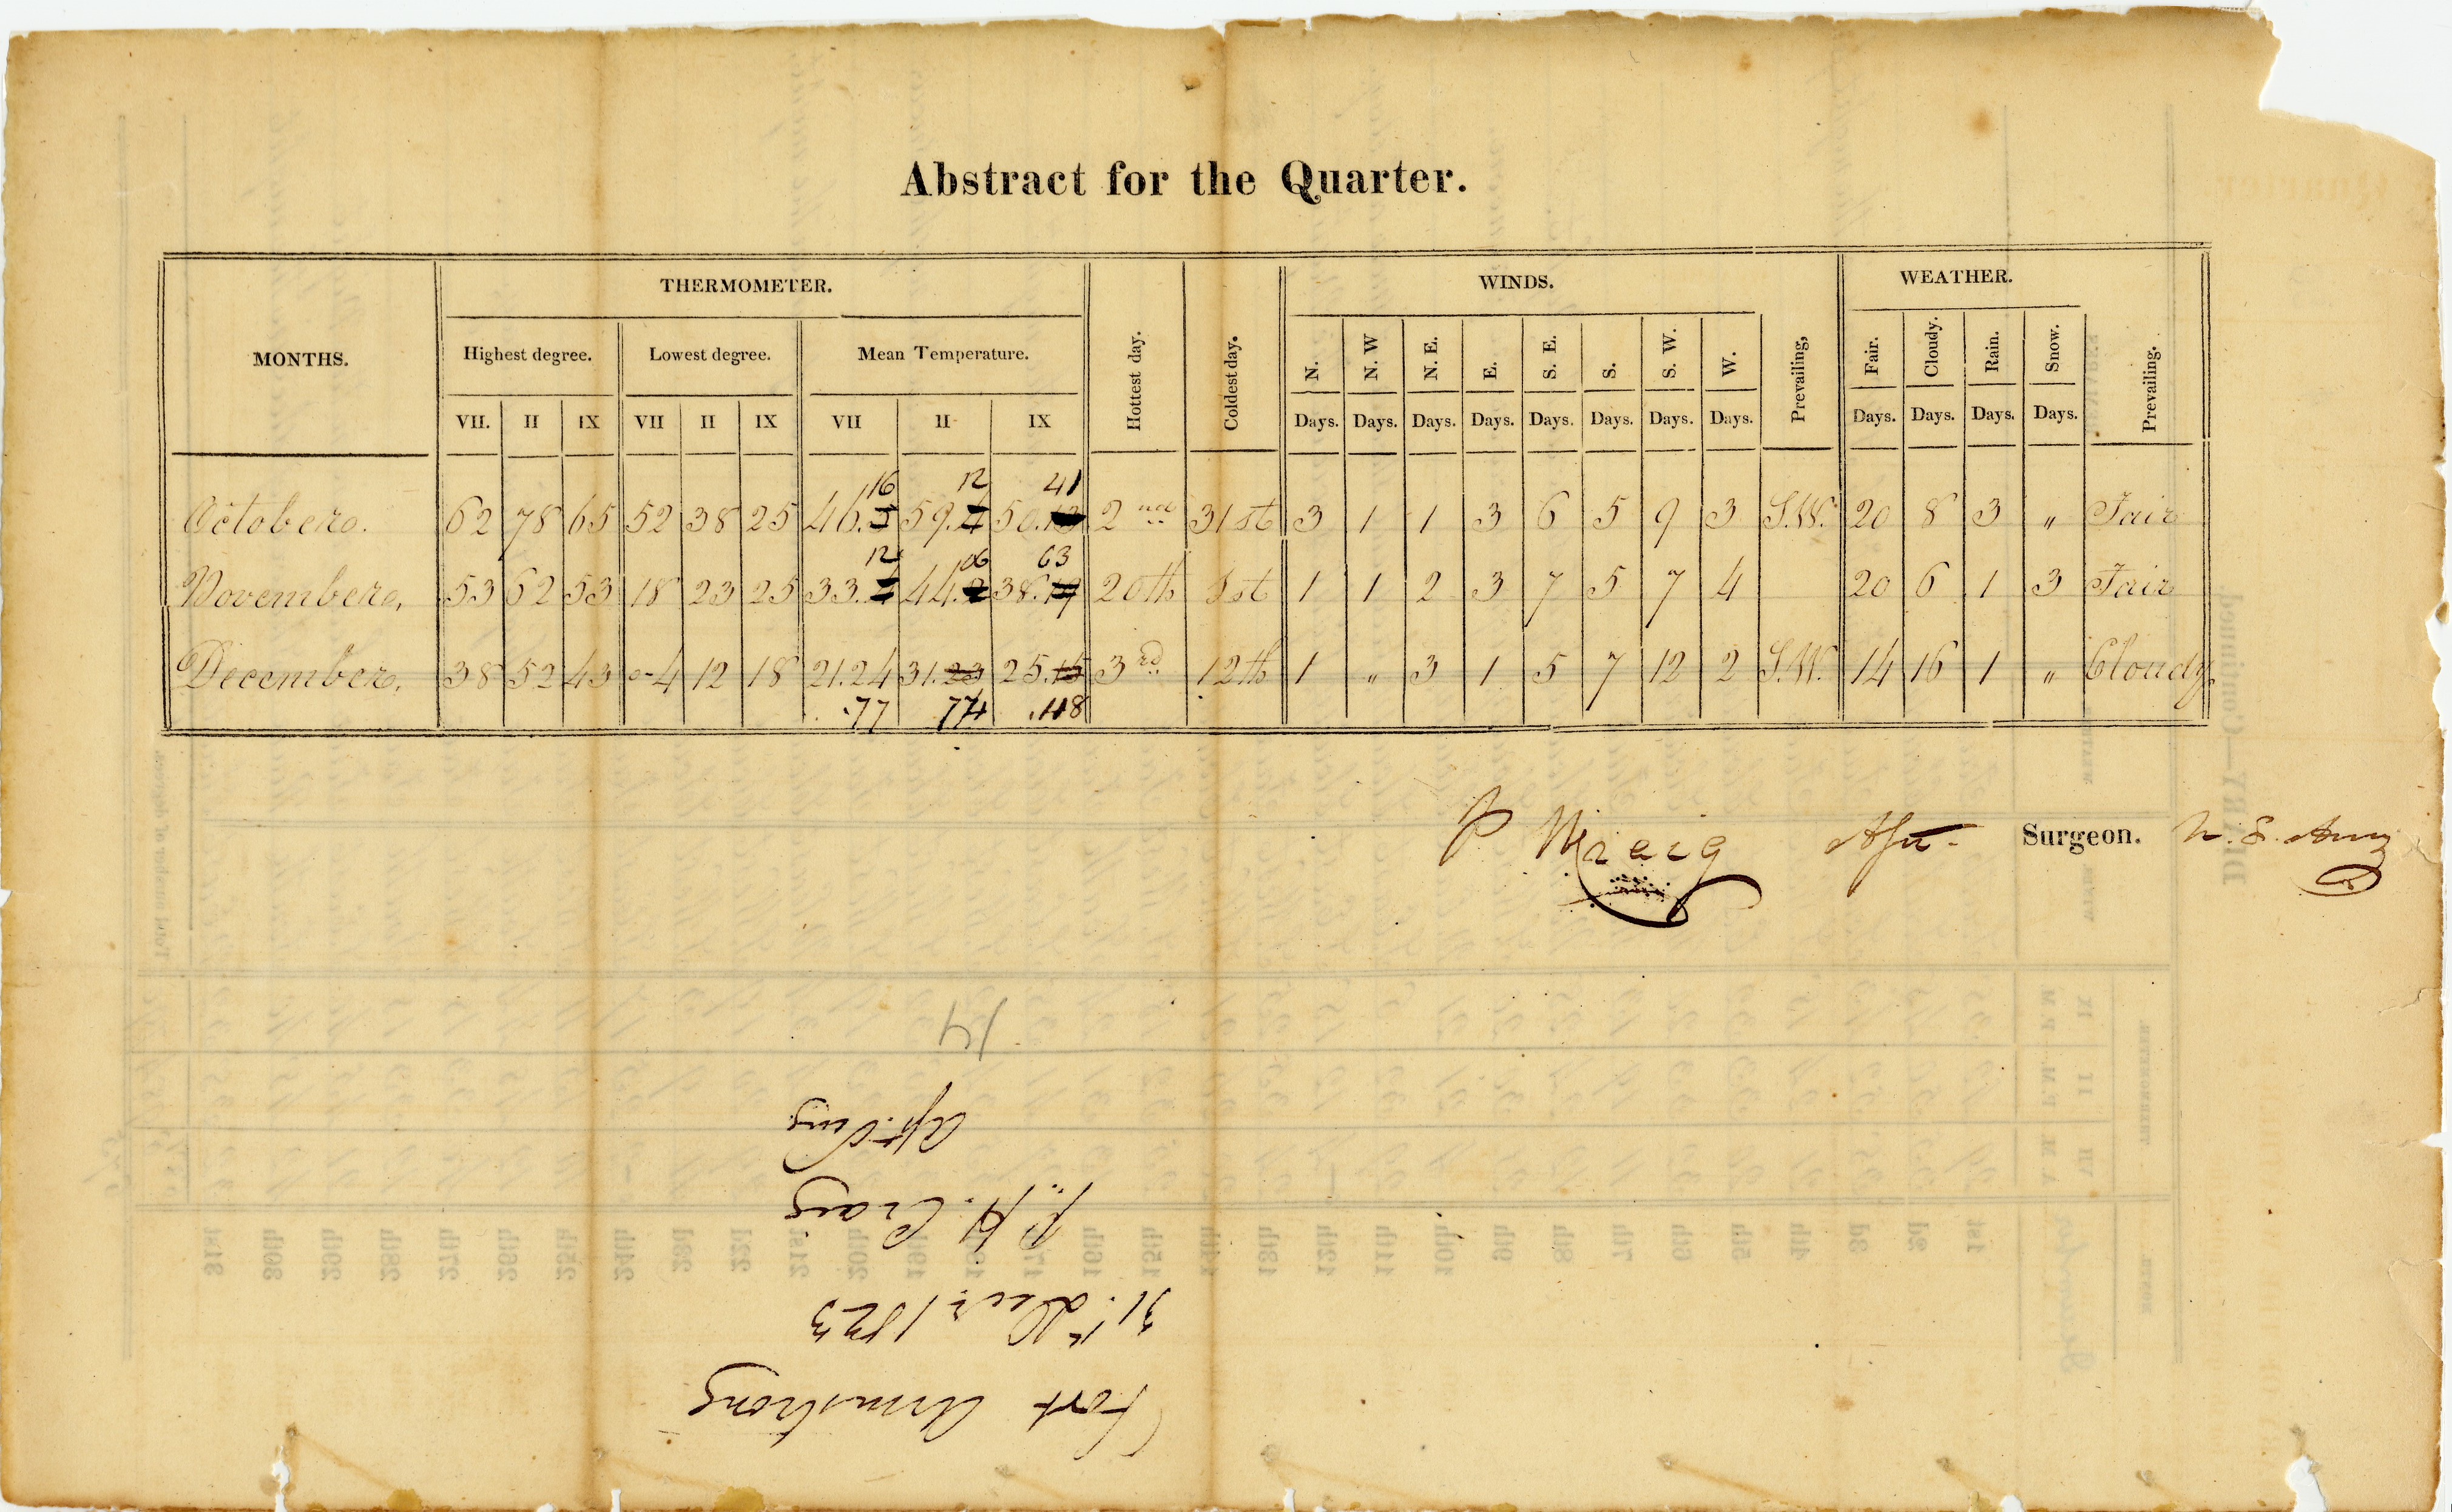 Abstract for the Quarter.
MONTHS. THERMOMETER. Hottest day. Coldest day. WINDS. WEATHER.
Highest degree. Lowest degree. Mean Temperature. N. N. W N. E. E. S. E. S. S. W. W. Prevailing, Fair. Cloudy. Rain. Snow. Prevailing.
VII. II IX VII II IX VII II IX Days. Days. Days. Days. Days. Days. Days. Days. Days. Days. Days. Days.
16 12 41
October. 62 78 65 52 38 25 46. 59. 50. 2nd 31st 3 1 1 3 6 5 9 3 S.W. 20 8 3 " Fair
12 06 63
November, 53 62 53 18 23 25 33. 44. 38. 20th 1st 1 1 2 3 7 5 7 4 20 6 1 3 Fair
December, 38 52 43 0-4 12 18 21.24 31.23 25.15 3rd 12th 1 " 3 1 5 7 12 2 S.W. 14 16 1 " Cloudy,
.77 .74 .48
P HCraig Asst. Surgeon. U. S. Army
Fort Armstrong
31st Decr. 1823
P. H. Craig
Asst. Surg
14